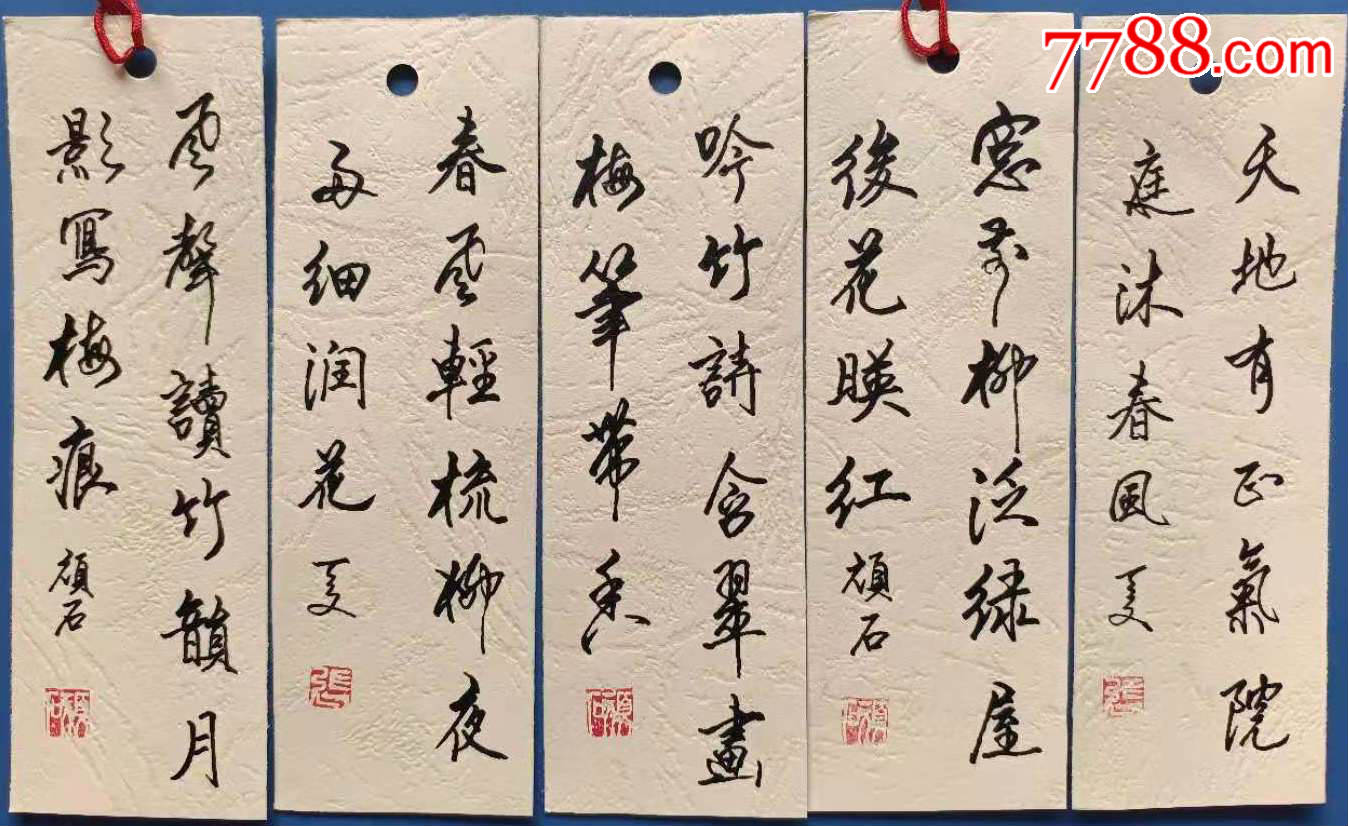 7788.com
天地有正氣院
庭沐春風
张
窓前柳泛緑屋
後花暎红 頑石
吟竹詩含翠畫
梅筆带香
春风輕梳柳夜
雨细润花
张
风聲讀竹韻月
影寫梅痕 頑石